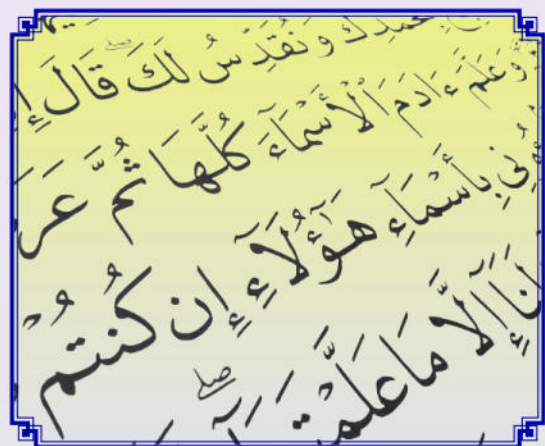 بِحَمْدِكَ وَنُقَدِّسُ لَكَ ۖ قَالَ
وَعَلَّمَ ءَادَمَ ٱلْأَسْمَآءَ كُلَّهَا ثُمَّ
بِأَسْمَآءِ هَٰٓؤُلَآءِ إِن كُنتُمْ
إِلَّا مَا عَلَّمْتَ